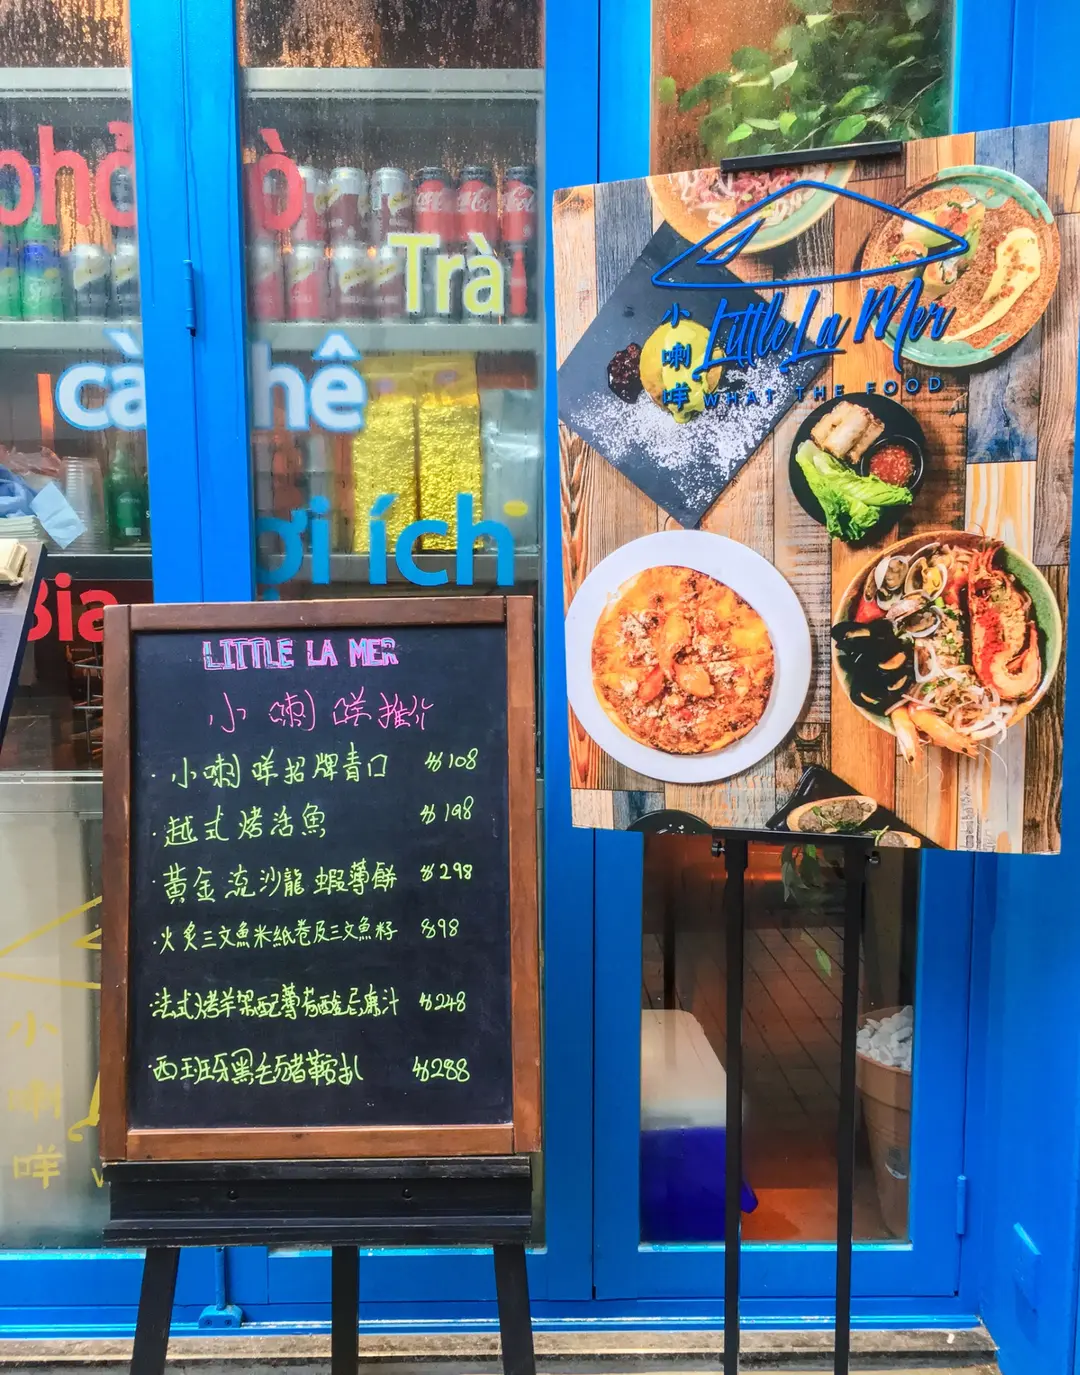 phở
ò
Trà
cà
hê
ợi ích
Bia
LITTLE LA MER
小喇咩推介
· 小喇咩招牌青口 $108
· 越式烤活魚 $198
· 黃金流沙龍蝦薄餅 $298
· 火炙三文魚米紙卷及三文魚籽 $98
· 法式烤羊架配薄荷酸忌廉汁 $248
· 西班牙黑毛豬鞍扒 $288
小喇咩
Little La Mer
WHAT THE FOOD
小
喇
咩